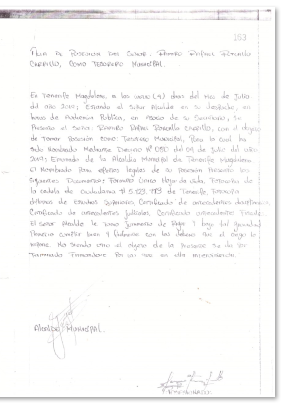 163
Acta de Posesion del Señor. Ramiro Rafael
Carrillo, como Tesorero Municipal.
En Tenerife Magdalena a los nueve (9) dias del mes de Julio
del año 2012; Estando el señor Alcalde en su despacho, en
horas de Audiencia Publica, en asocio de su Secretario, se
Presento el Señor: Ramiro Rafael Carrillo, con el objeto
de tomar Posesion como: Tesorero Municipal, Para la cual ha
sido Nombrado Mediante Decreto Nº 090 del 09 de Julio del
año 2012; Emanado de la Alcaldia Municipal de Tenerife Magdalena
El Nombrado Para efectos legales de su Posesión Presento los
siguientes Documentos: Formato Unico Hoja de vida, Fotocopia de
la cedula de ciudadania # de Tenerife, Fotocopia
de Estudios Certificado de antecedentes disciplinarios
Certificado de antecedentes Judiciales, Certificado antecedentes Fiscales.
El señor Alcalde le tomo Juramento de Rigor y bajo tal gravedad
Prometio cumplir bien y fielmente con los deberes que el cargo le
impone. No siendo otro el objeto de la Presente se da por
terminada firmandose Por los que en ella intervinieron.
Alcalde Municipal.